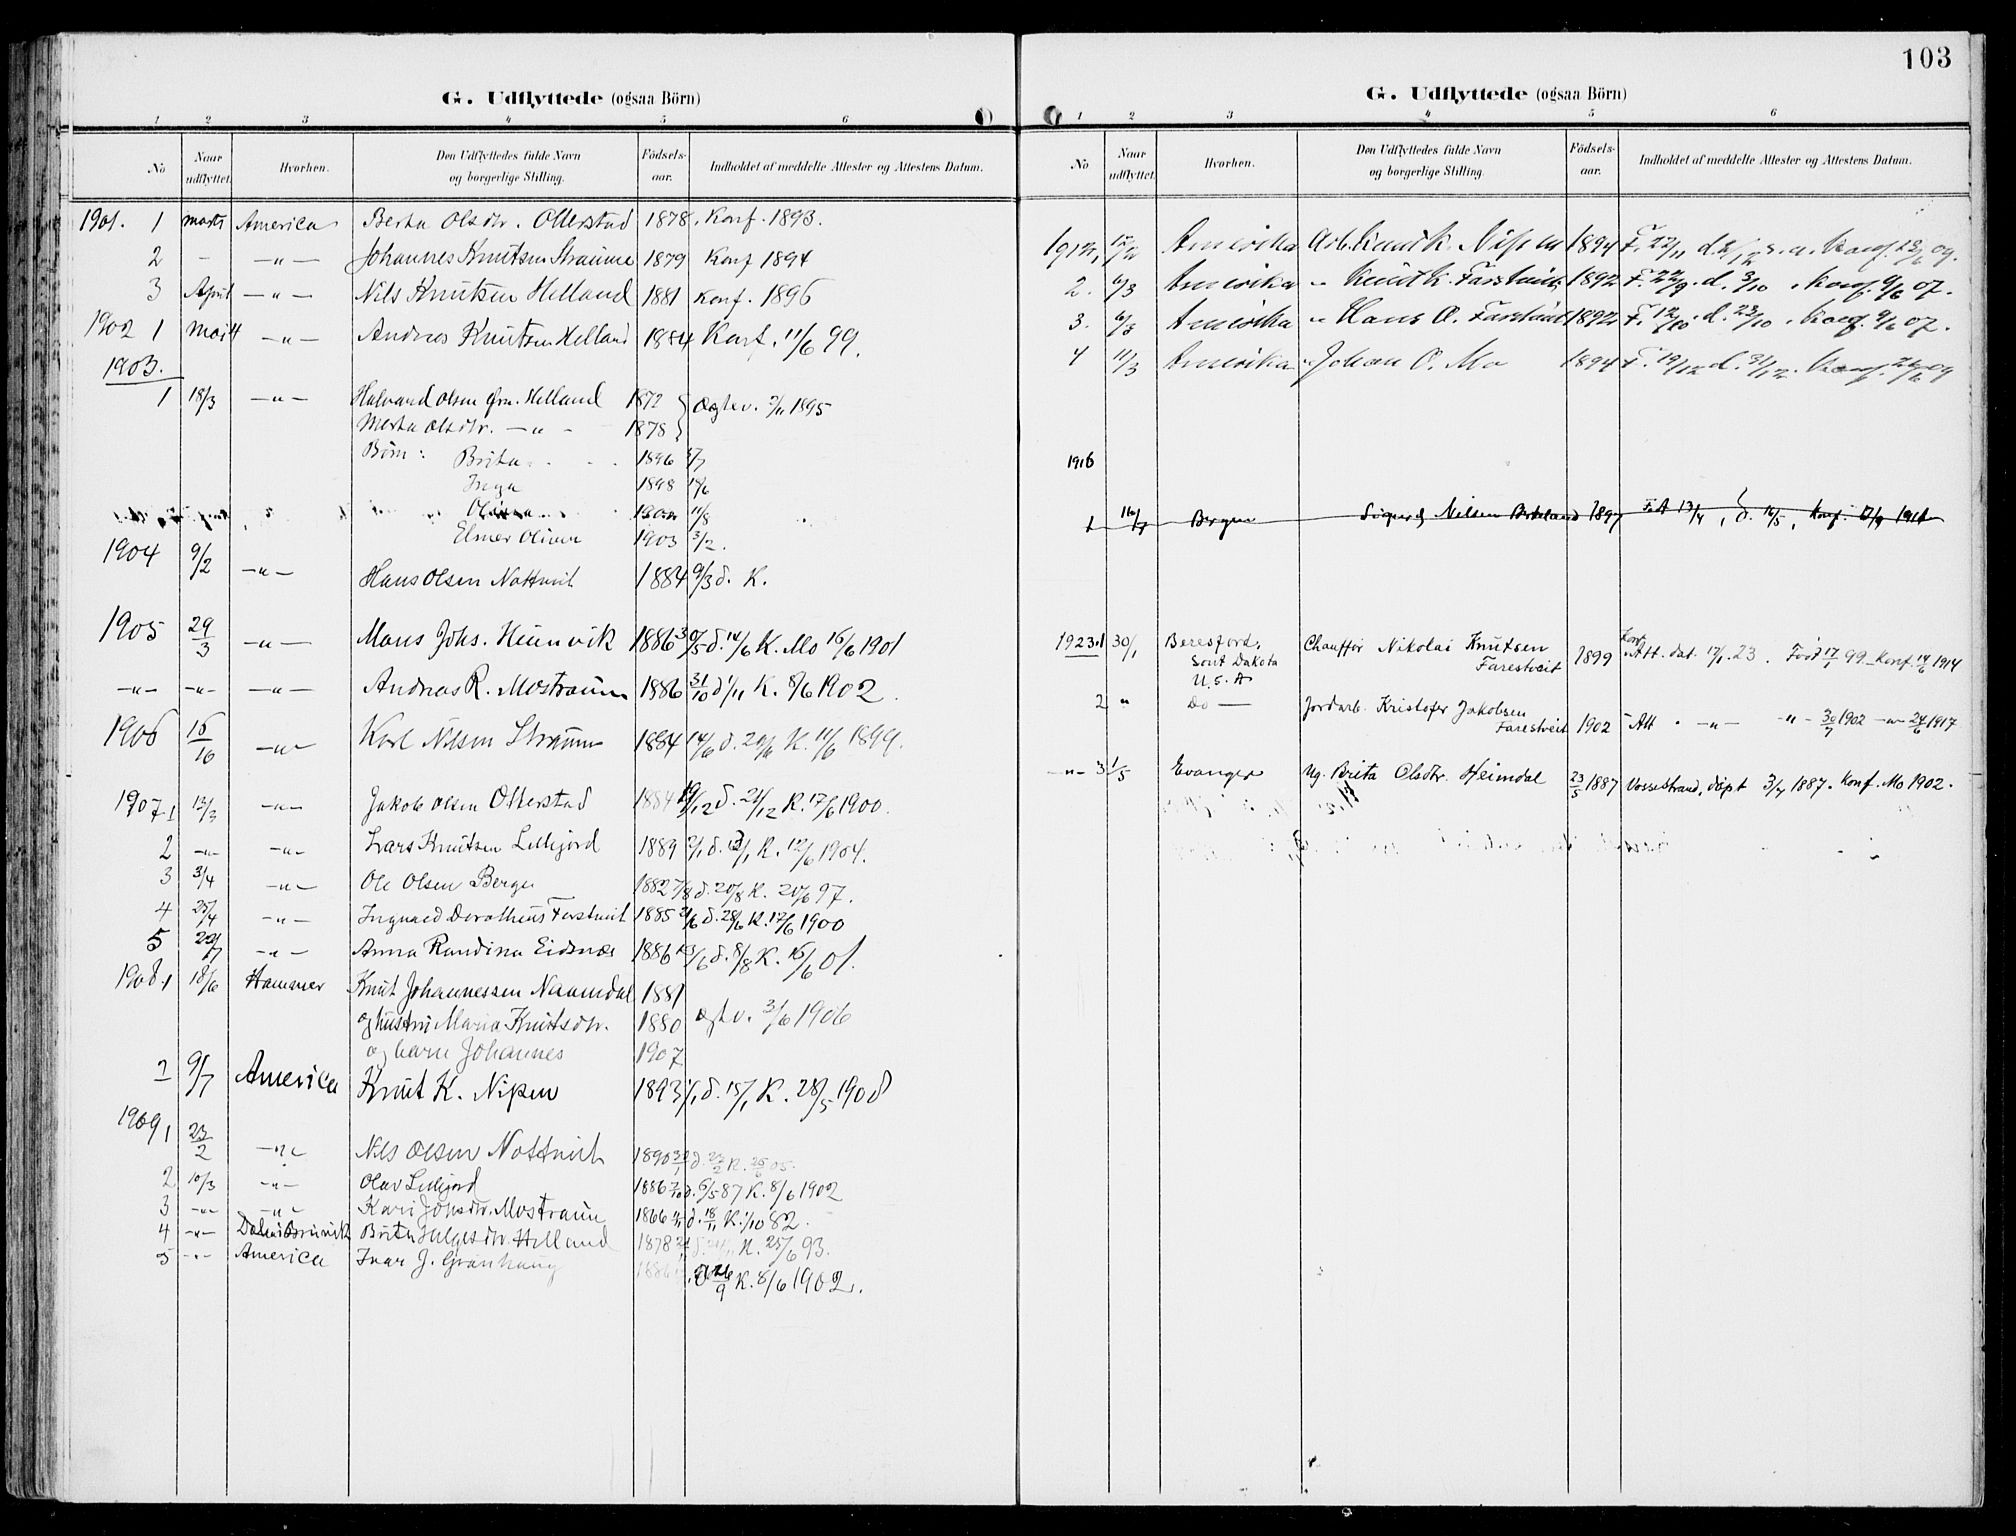 103
G. Udflyttede (ogsaa Börn)
1 2 3 4 5 6
No Naar udflyttet. Hvorhen. Den Udflyttedes fulde Navn og borgerlige Stilling. Födsels-aar. Indholdet af meddelte Attester og Attestens Datum.
1901. 1 marts America Berta Olsdtr. Otterstad 1878. Konf. 1893.
2 - -"- Johannes Knutsen Straume 1879 Konf 1894
3 April -"- Nils Knutsen Helland 1881 Konf. 1896
1902 1 -"- Andreas Knutsen Helland 1884 Konf. 11/6 99.
1903.
1 18/3 -"- Halvard Olsen Helland 1872
Merta Olsdtr. -"- 1878 Ægtev. 1895
Børn: Brita 1896
Inga 1898
11/8
Elmer Oliver 1903 3/2.
1904 9/2 -"- Hans Olsen Nottveit 1884 9/3 d. K.
1905 29/3 -"- Mons Johs. Heimvik 1886 d. 14/6 K. Mo 16/6 1901
-"- -"- -"- Andreas R. Mostraum 1886 31/10 d 1/11 K. 8/6 1902.
1906 -"- Karl Nilsen Straume 1884 14/6 d. K. 11/6 1899.
1907 1 13/3 -"- Jakob Olsen Otterstad 1884 19/12 d. 21/12 K. 17/6 1900.
2 -"- -"- Lars Knutsen Lillejord 1889 K. 12/6 1904.
3 3/4 -"- Ole Olsen Berge 1882 7/8 d. 20/8 K. 20/6 97.
4 25/4 -"- Ingvald Dorotheus Farestveit 1885 d. 28/6 K. 17/6 1900
5 -"- Anna Randina Eidsnes 1886 d. 8/8 K. 16/6 01.
1908 1 18/6 Hammer Knut Johannessen Naamdal 1881
og hustru Maria Knutsdtr. 1880 ægtev. 3/6 1906
og barn Johannes 1907
2 9/7 America Knut K. Nipen 1893 d. 15/1 K. 28/5 1908
1909 1 23/2 -"- Nils Olsen Nottveit 1890 d. 23/2 K. 05.
2 10/3 -"- Olav Lillejord 1886 d. 87 K. 8/6 1902
3 -"- -"- Kari Johsdtr. Mostraum 1866 d. 18/11 K. 1/10 82.
4 -"- Brita Helgesdtr. Helland 1878 K. 25/6 93.
5 -"- America Ivar J. Grønhaug 1886 K. 8/6 1902.
G. Udflyttede (ogsaa Börn)
1 2 3 4 5 6
No Naar udflyttet. Hvorhen. Den Udflyttedes fulde Navn og borgerlige Stilling. Födsels-aar. Indholdet af meddelte Attester og Attestens Datum.
1912, 1 Amerika Arb. Knut K. Nipen 1894 F. 23/11 Konf. 09.
2. 6/3 Amerika " Knut K. Farstveit 1892 F. 22/9. d. 3/10. Konf. 9/6 07.
3. 6/3 Amerika " Hans O. Farstveit 1892 F. 12/10. d. 23/10. Konf. 9/6 07.
4 11/3 Amerika " Johan O. Mo 1894 F. 19/12 d. 31/12. Konf. 09
1916
1 Bergen Sigurd Nilsen 1897 13/4, d. 16/5, Konf.
1923. 1 30/1 Beresford, Sout Dakota U.S.A Chauffør Nikolai Knutsen Farestveit 1899 Att. dat. 17/1. 23. Född 17/7 99 - Konf. 14/6 1914
2 " Do - Jordarb. Kristofer Jakobsen Farestveit 1902 - Att " -"- -"- 30/7 1902 -"- 24/6 1917
-"- 3 1/5 Evanger Ug. Brita Olsdtr. Heimdal 23/5 1887 Vossestrand, döpt 3/7 1887. Konf. Mo 1902.